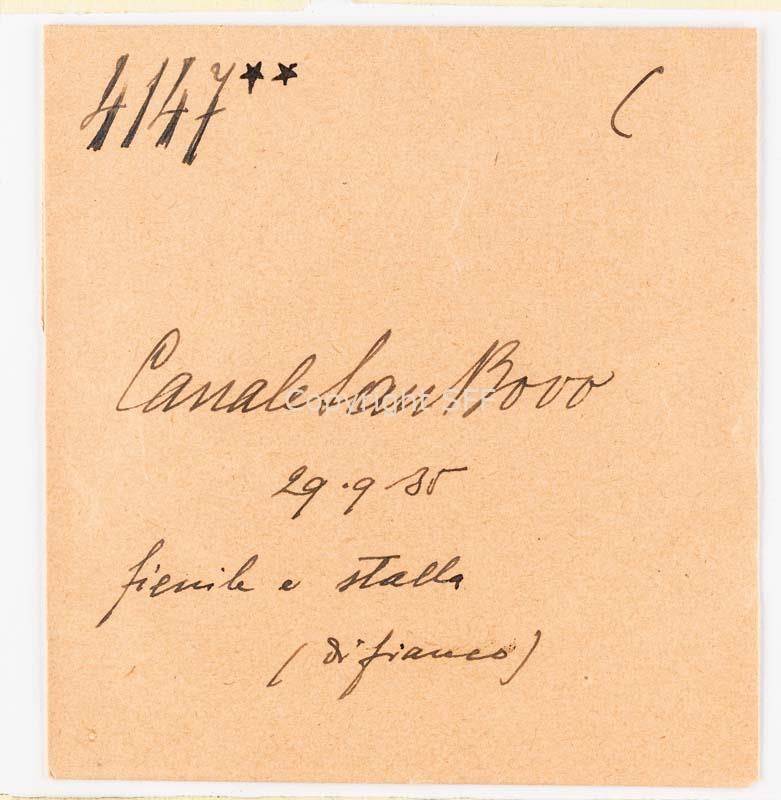 4147** C
Canale San Bovo
Copyright SFF
29.9 35
fienile e stalla
(di fianco)